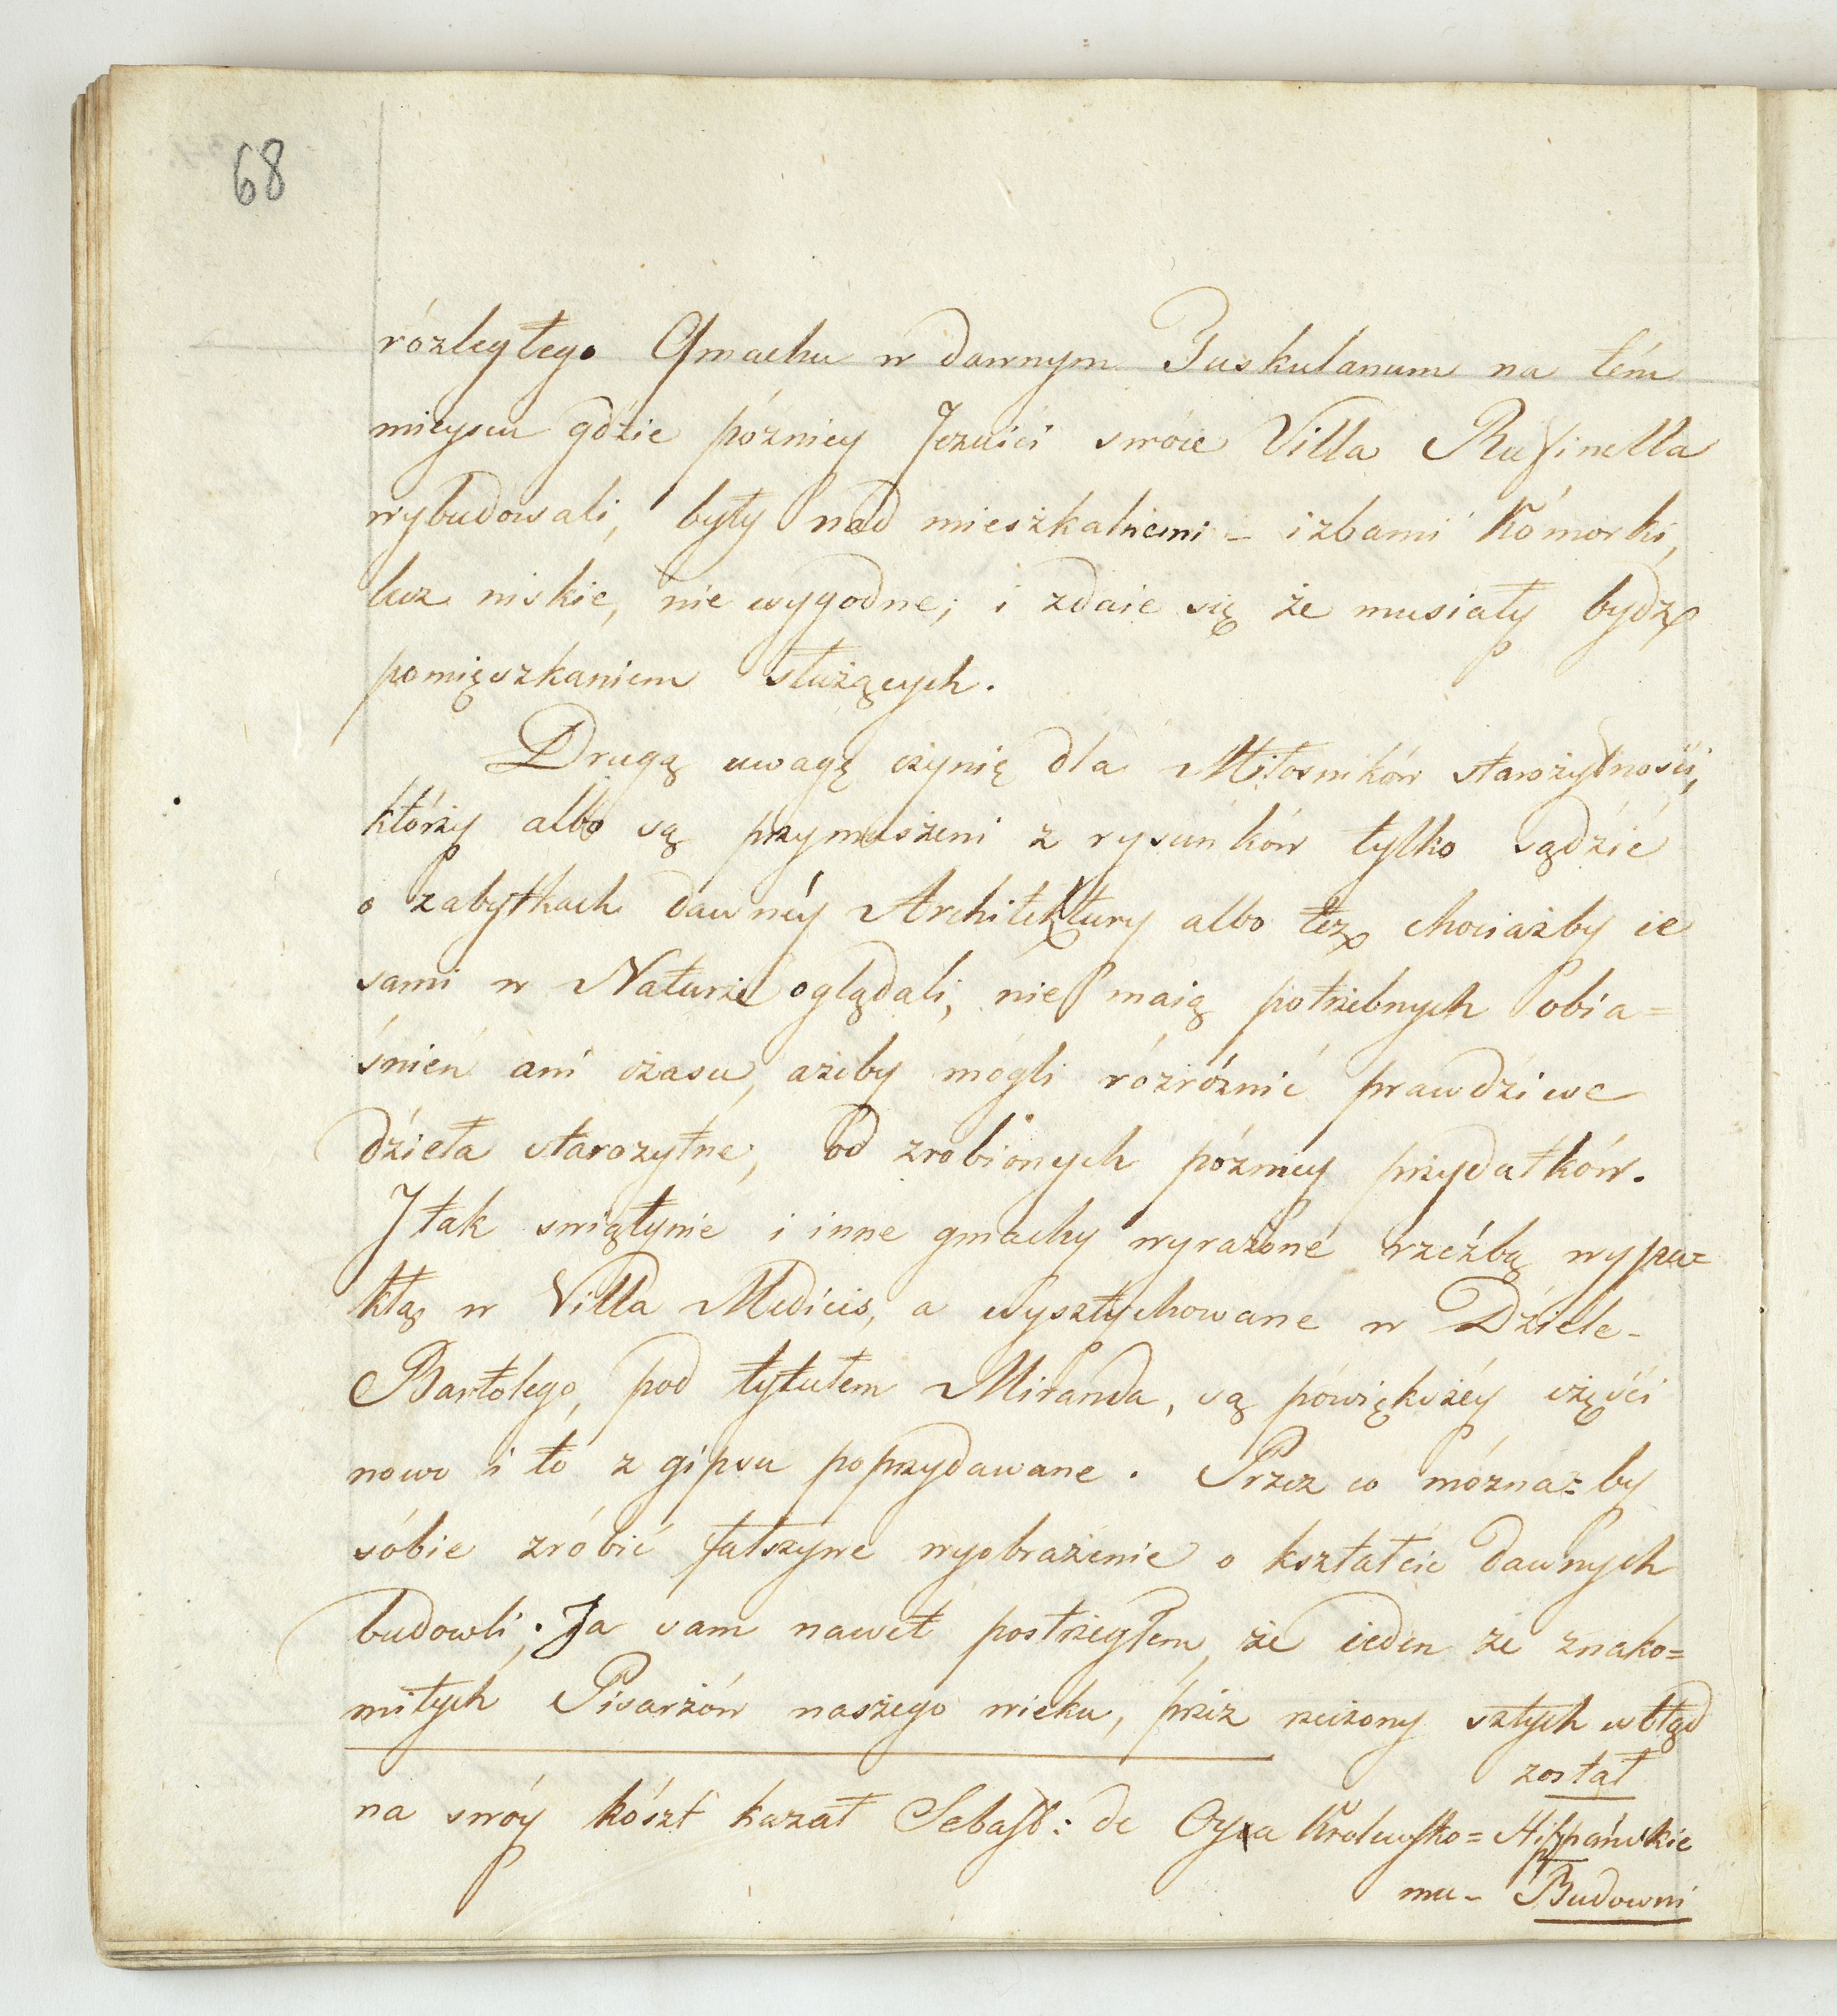 68
rózległego Gmachu w dawnym Tuskulanum na tém
mieyscu gdzie pózniey Jezuici swóie Villa Rufinella
wybudowali, były nad mieszkalnemi - izbami Kómorki,
lecz niskie, nie wygodne; i zdaie się że musiały bydz
pomięszkaniem służących.
Drugą uwagę czynię dla Miłosników starożytności,
którzy albo są przymuszeni z rysunków tylko sądzić
o zabytkach dawnéy Architektury albo też chociażby ie
sami w Naturze oglądali, nie maią potrzebnych obia=
śnień ani czasu, ażeby mógli rózróznić prawdziwe
dzieła starozytne, od zrobionych pózniey przydatków.
I tak swiątynie i inne gmachy wyrażone rzeźbą wypu=
kłą w Villa Medicis, a wysztychowane w Dziele-
Bartolego, pod tytułem Miranda, są pówiększéy części
nowo i to z gipsu poprzydawane. Przez co mózna=by
sóbie zróbić fałszywe wyobrażenie o kształcie dawnych
budowli; Ja sam nawet postrzegłem, że ieden ze znako=
mitych Pisarzów naszego wieku, przez rzeczony sztych w błąd
został
na swóy kószt kazał Sebast: de Oyza Krolewsko= Hiszpańskie
mu- Budowni